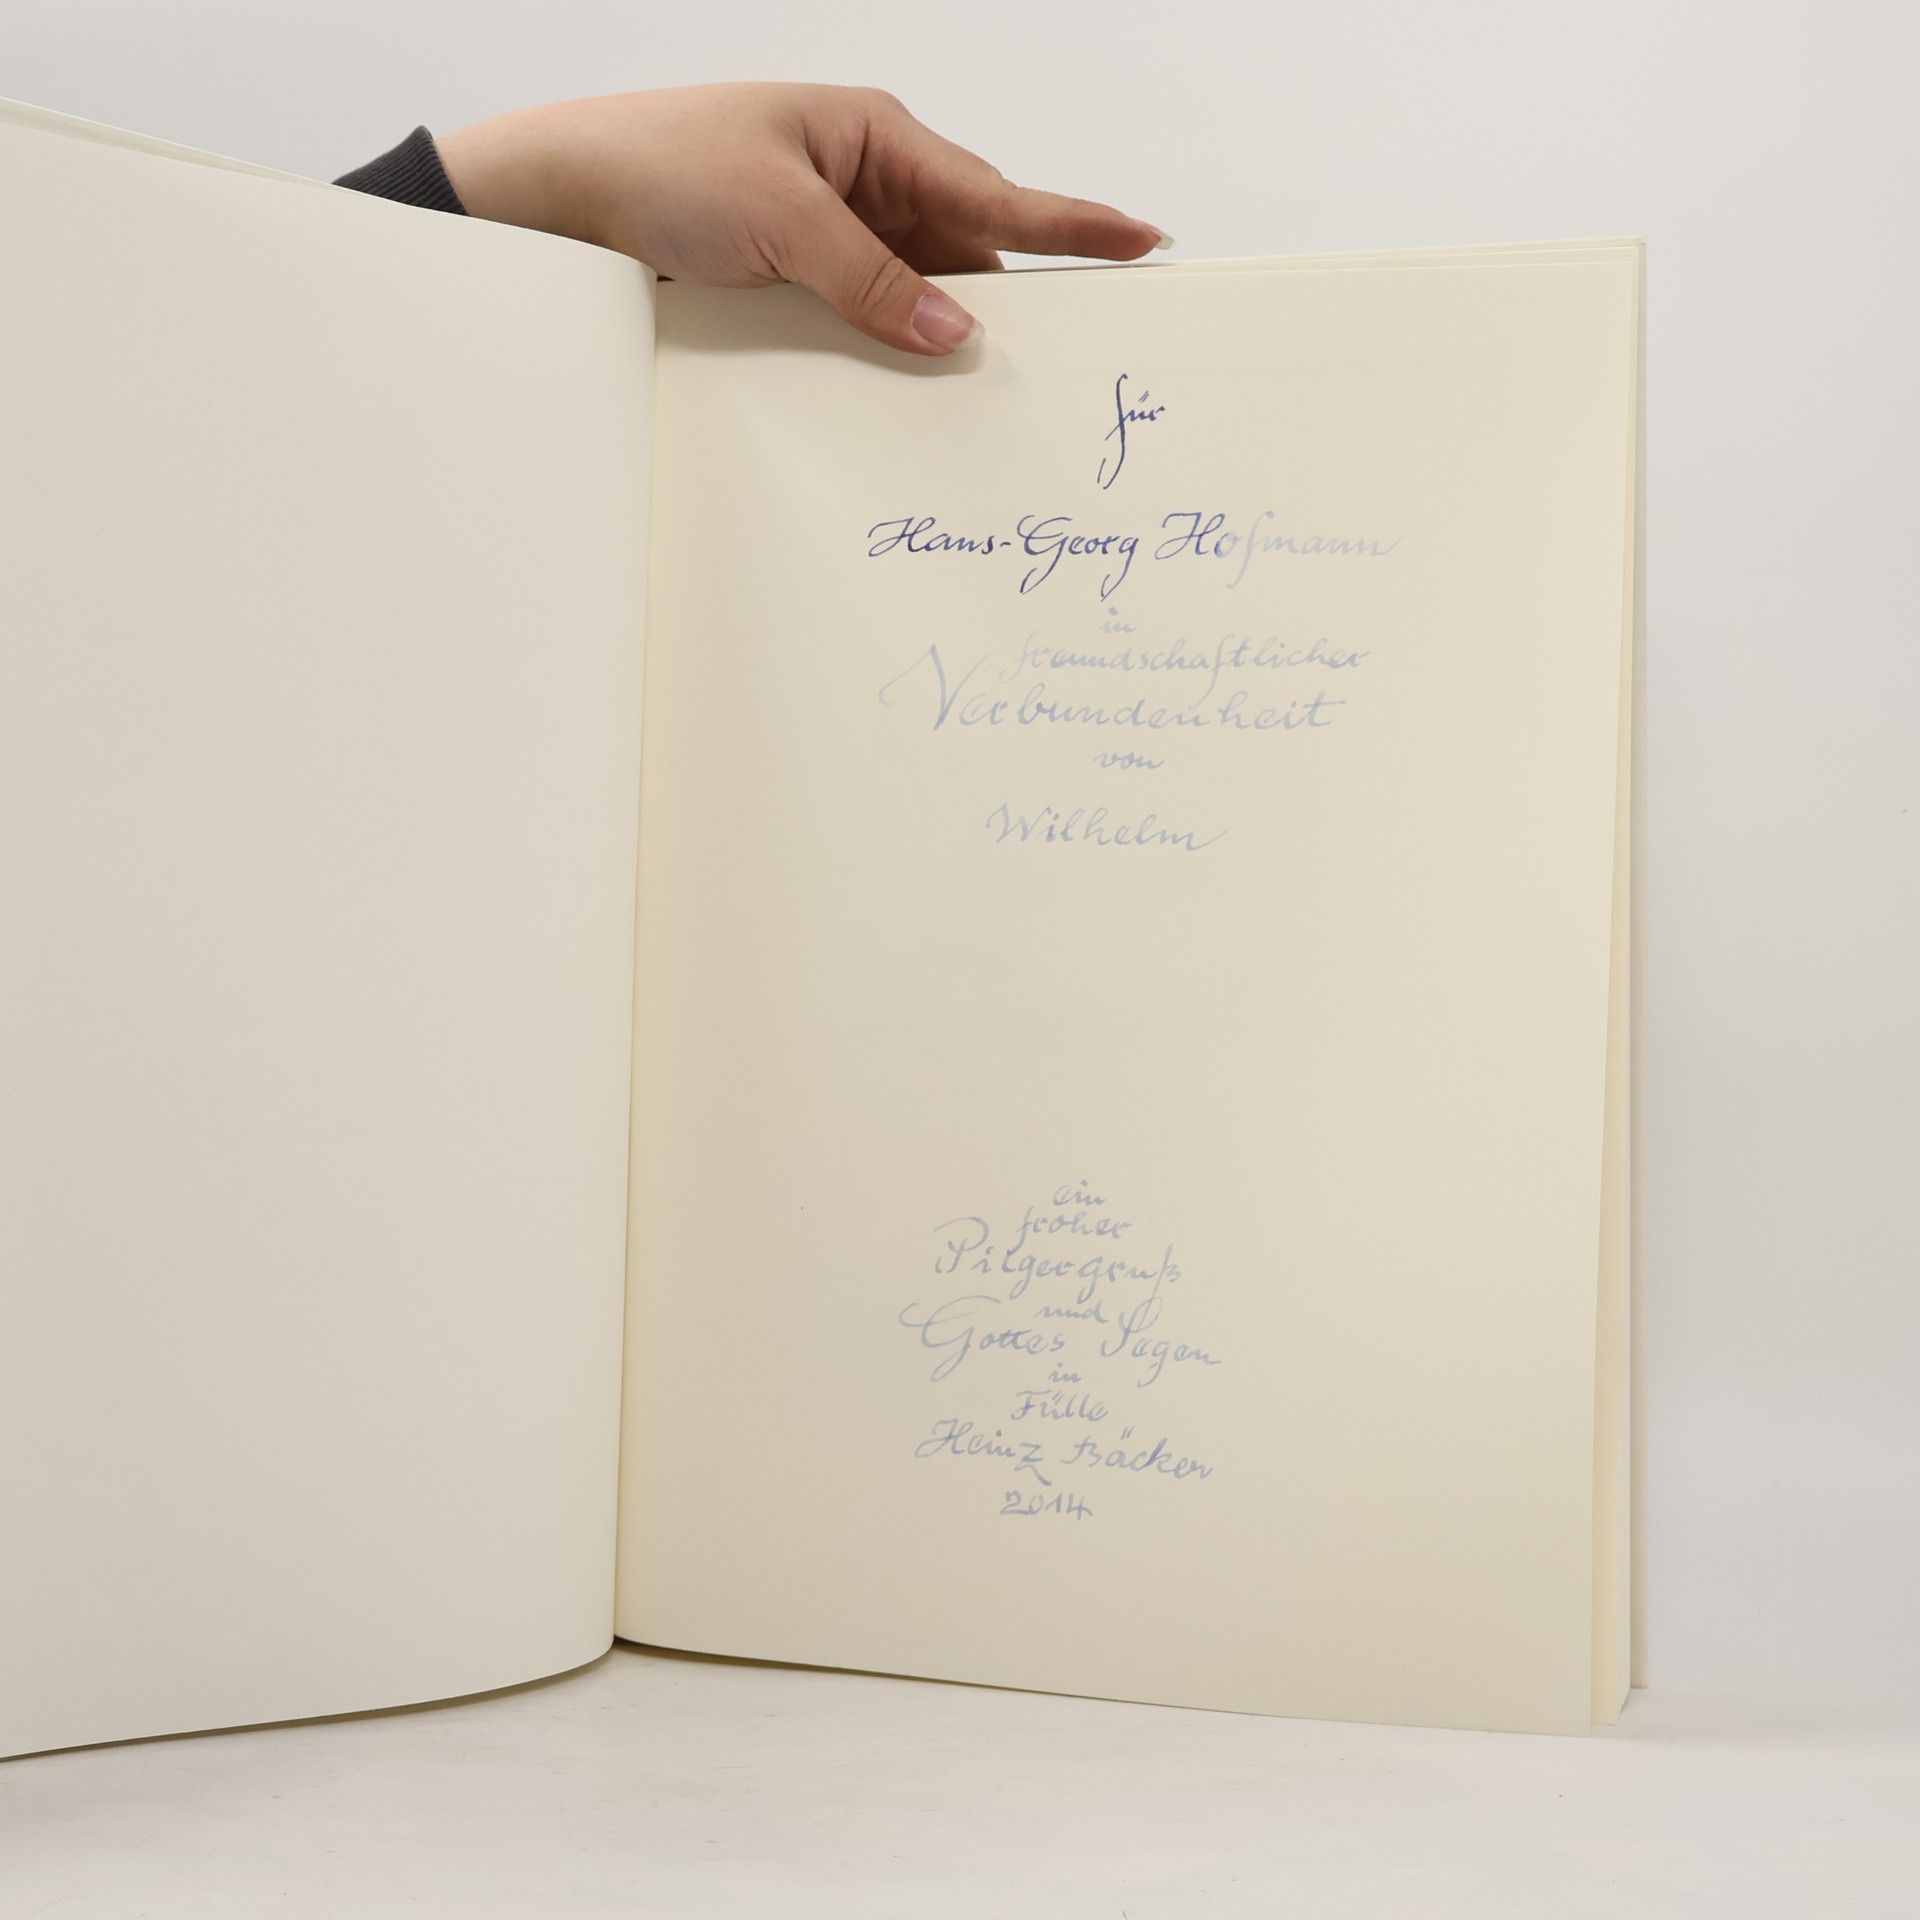 für
Hans-Georg Hofmann
in
freundschaftlicher
Verbundenheit
von
Wilhelm
ein
froher
Pilgergruß
und
Gottes Segen
in
Fülle
Heinz Bäcker
2014